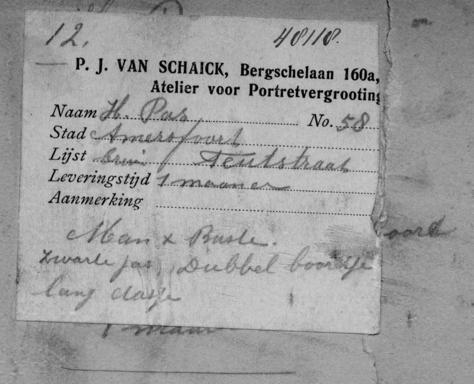 12. 48118.
P. J. VAN SCHAICK, Bergschelaan 160a,
Atelier voor Portretvergrooting
Naam H. Pas No. 58
Stad Amersfoort
Lijst Teutstraat
Leveringstijd 1 maand
Aanmerking
Man x Buste.
Zwarte jas, Dubbel boordje
lang dasje
oord